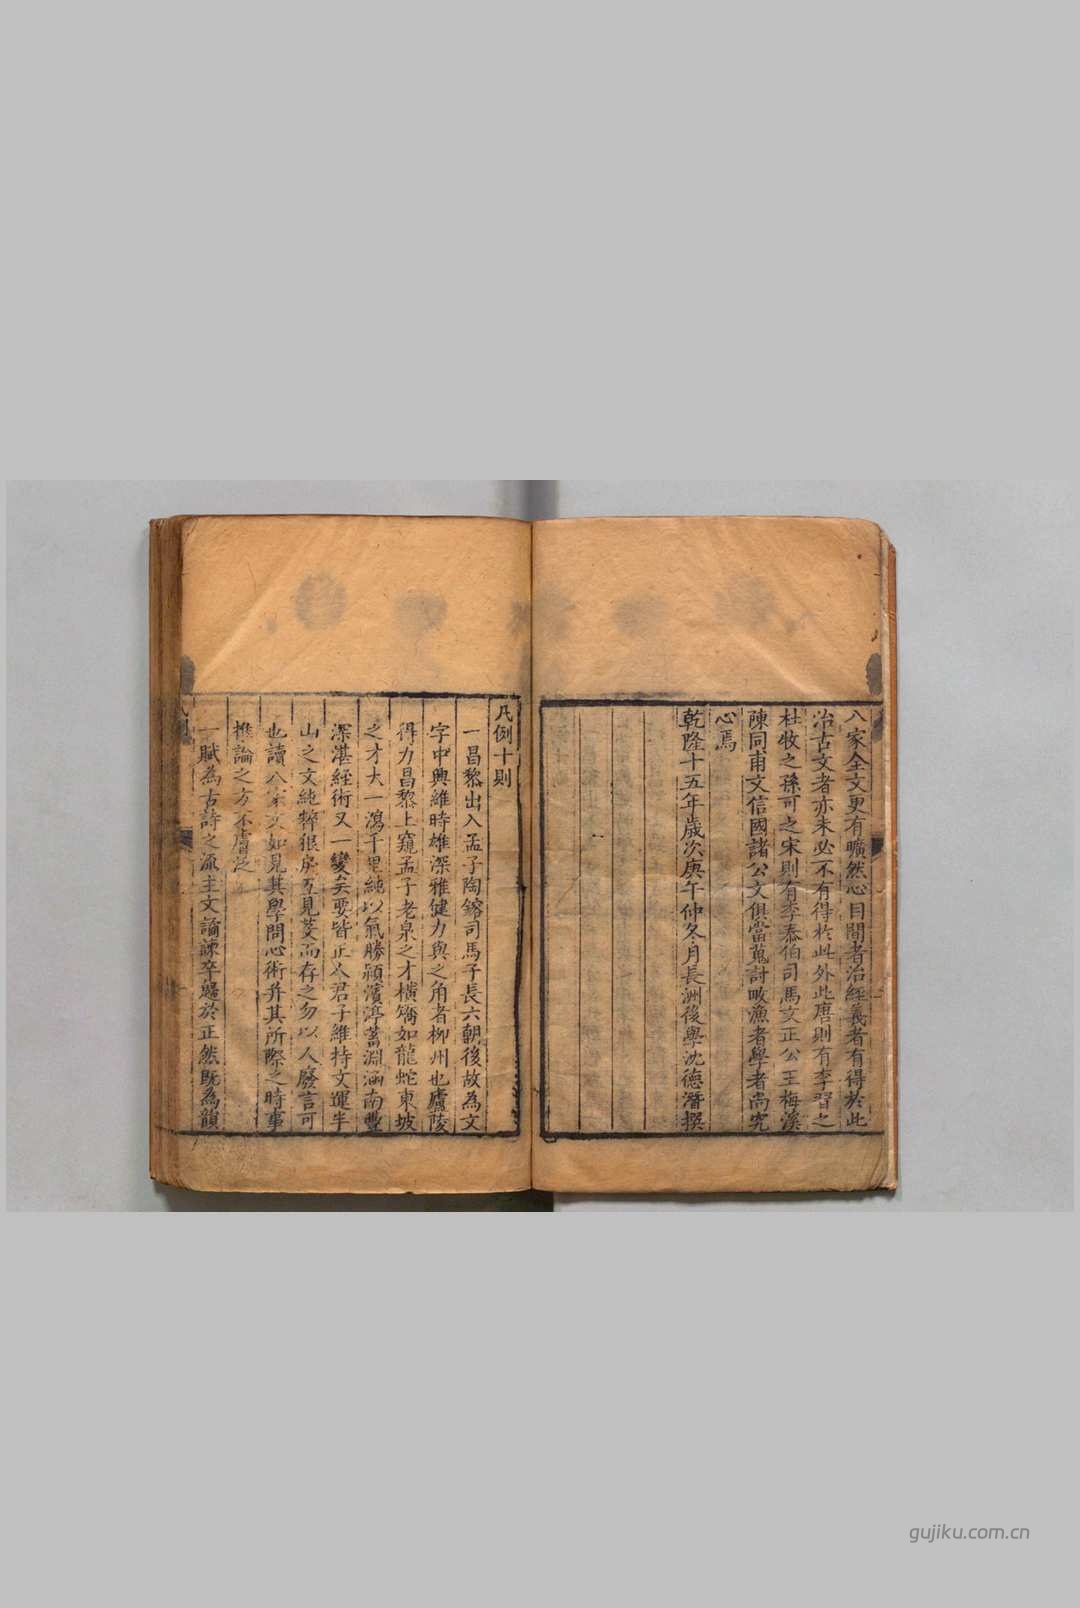 八家全文更有曠然心目間者治經義者有得於此
治古文者亦未必不有得於此外此唐則有李習之
杜牧之孫可之宋則有李泰伯司馬文正公王梅溪
陳同甫文信國諸公文俱當蒐討畋漁者學者尚究
心焉
乾隆十五年歲次庚午仲冬月長洲後學沈德潛撰
凡例十則
一昌黎出入孟子陶鎔司馬子長六朝後故為文
字中興維時雄深雅健力與之角者柳州也廬陵
得力昌黎上窺孟子老泉之才橫矯如龍蛇東坡
之才大一瀉千里純以氣勝潁濱渟蓄淵涵南豐
深湛經術又一變矣要皆正人君子維持文運半
山之文純粹狠戾互見芟而存之勿以人廢言可
也讀八家文如見其學問心術并其所際之時事
推論之方不膚泛
一賦為古詩之流主文譎諫卒歸於正然既為韻
gujiku.com.cn